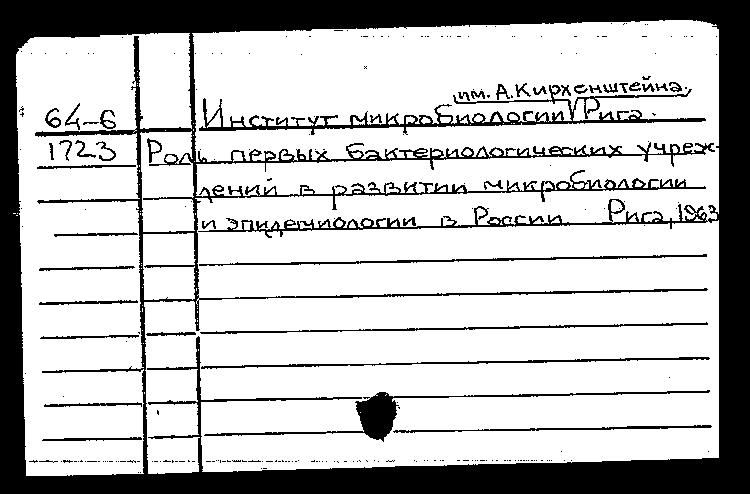 им. А. Кирхенштейна,
64-6 Институт микробиологии Рига.
1723 Роль первых бактериологических учреж-
дений в развитии микробиологии
и эпидемиологии в России Рига, 1963